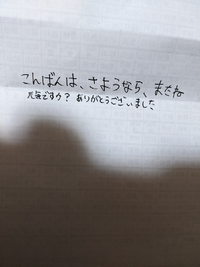 こんばんは、さようなら、またね
元気ですか？ ありがとうございました